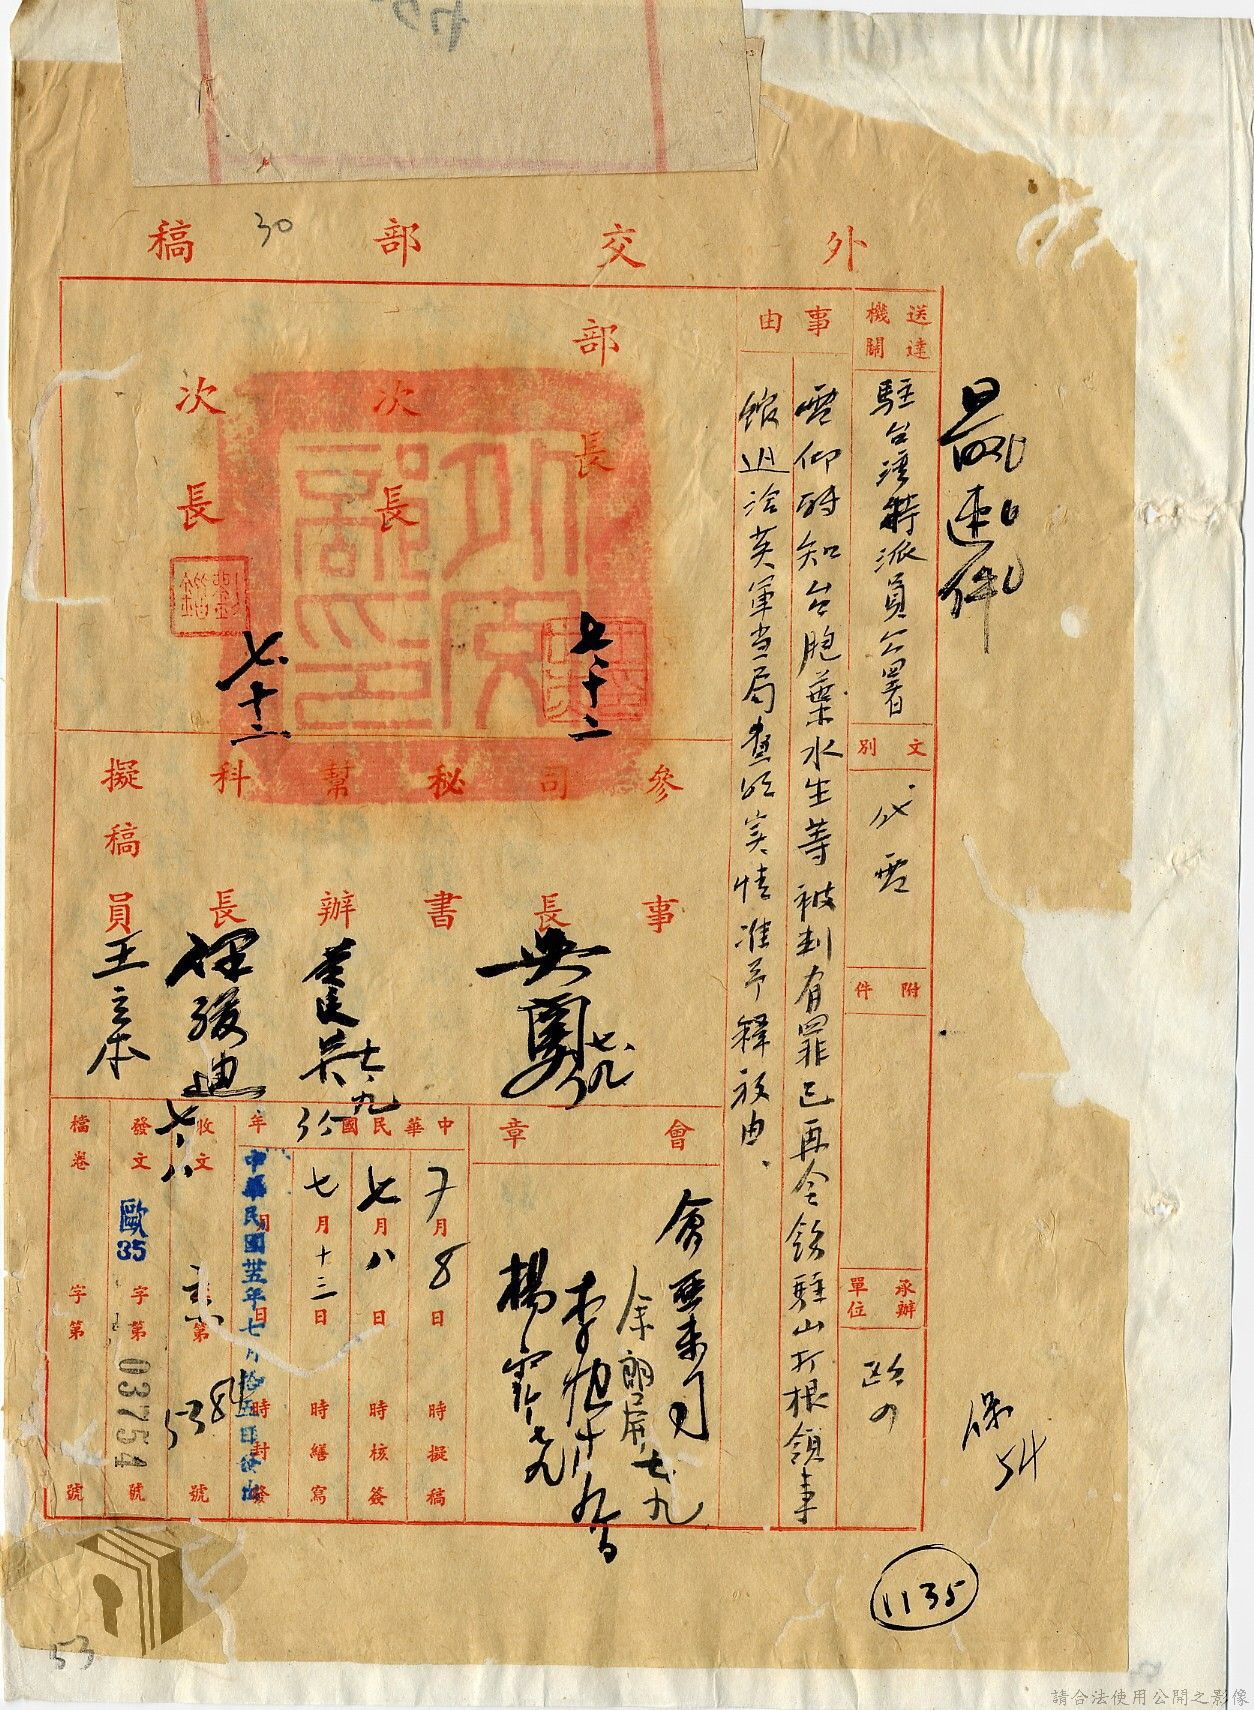 外交部稿
30
最速件
送達機關
駐台灣特派員公署
文別
代電
附件
承辦單位
歐
事由
電仰轉知台胞葉水生等被判有罪已再令飭駐山打根領事
館迅洽英軍當局查明實情准予釋放由
部長
次長
次長
外交部印
七、十二
七、十二
參事
司長
秘書
幫辦
科長
擬稿員
王立本
七、九
七、九
七、八
會章
李
楊
七、九
中華民國 年
7月8日 時擬稿
七月八日 時核簽
七月十三日 時繕寫
月 日 時封發
中華民國卅五年七月拾五日
收文 字第 號
發文 歐35 字第 03754 號
檔卷 字第 號
54
1135
53
請合法使用公開之影像